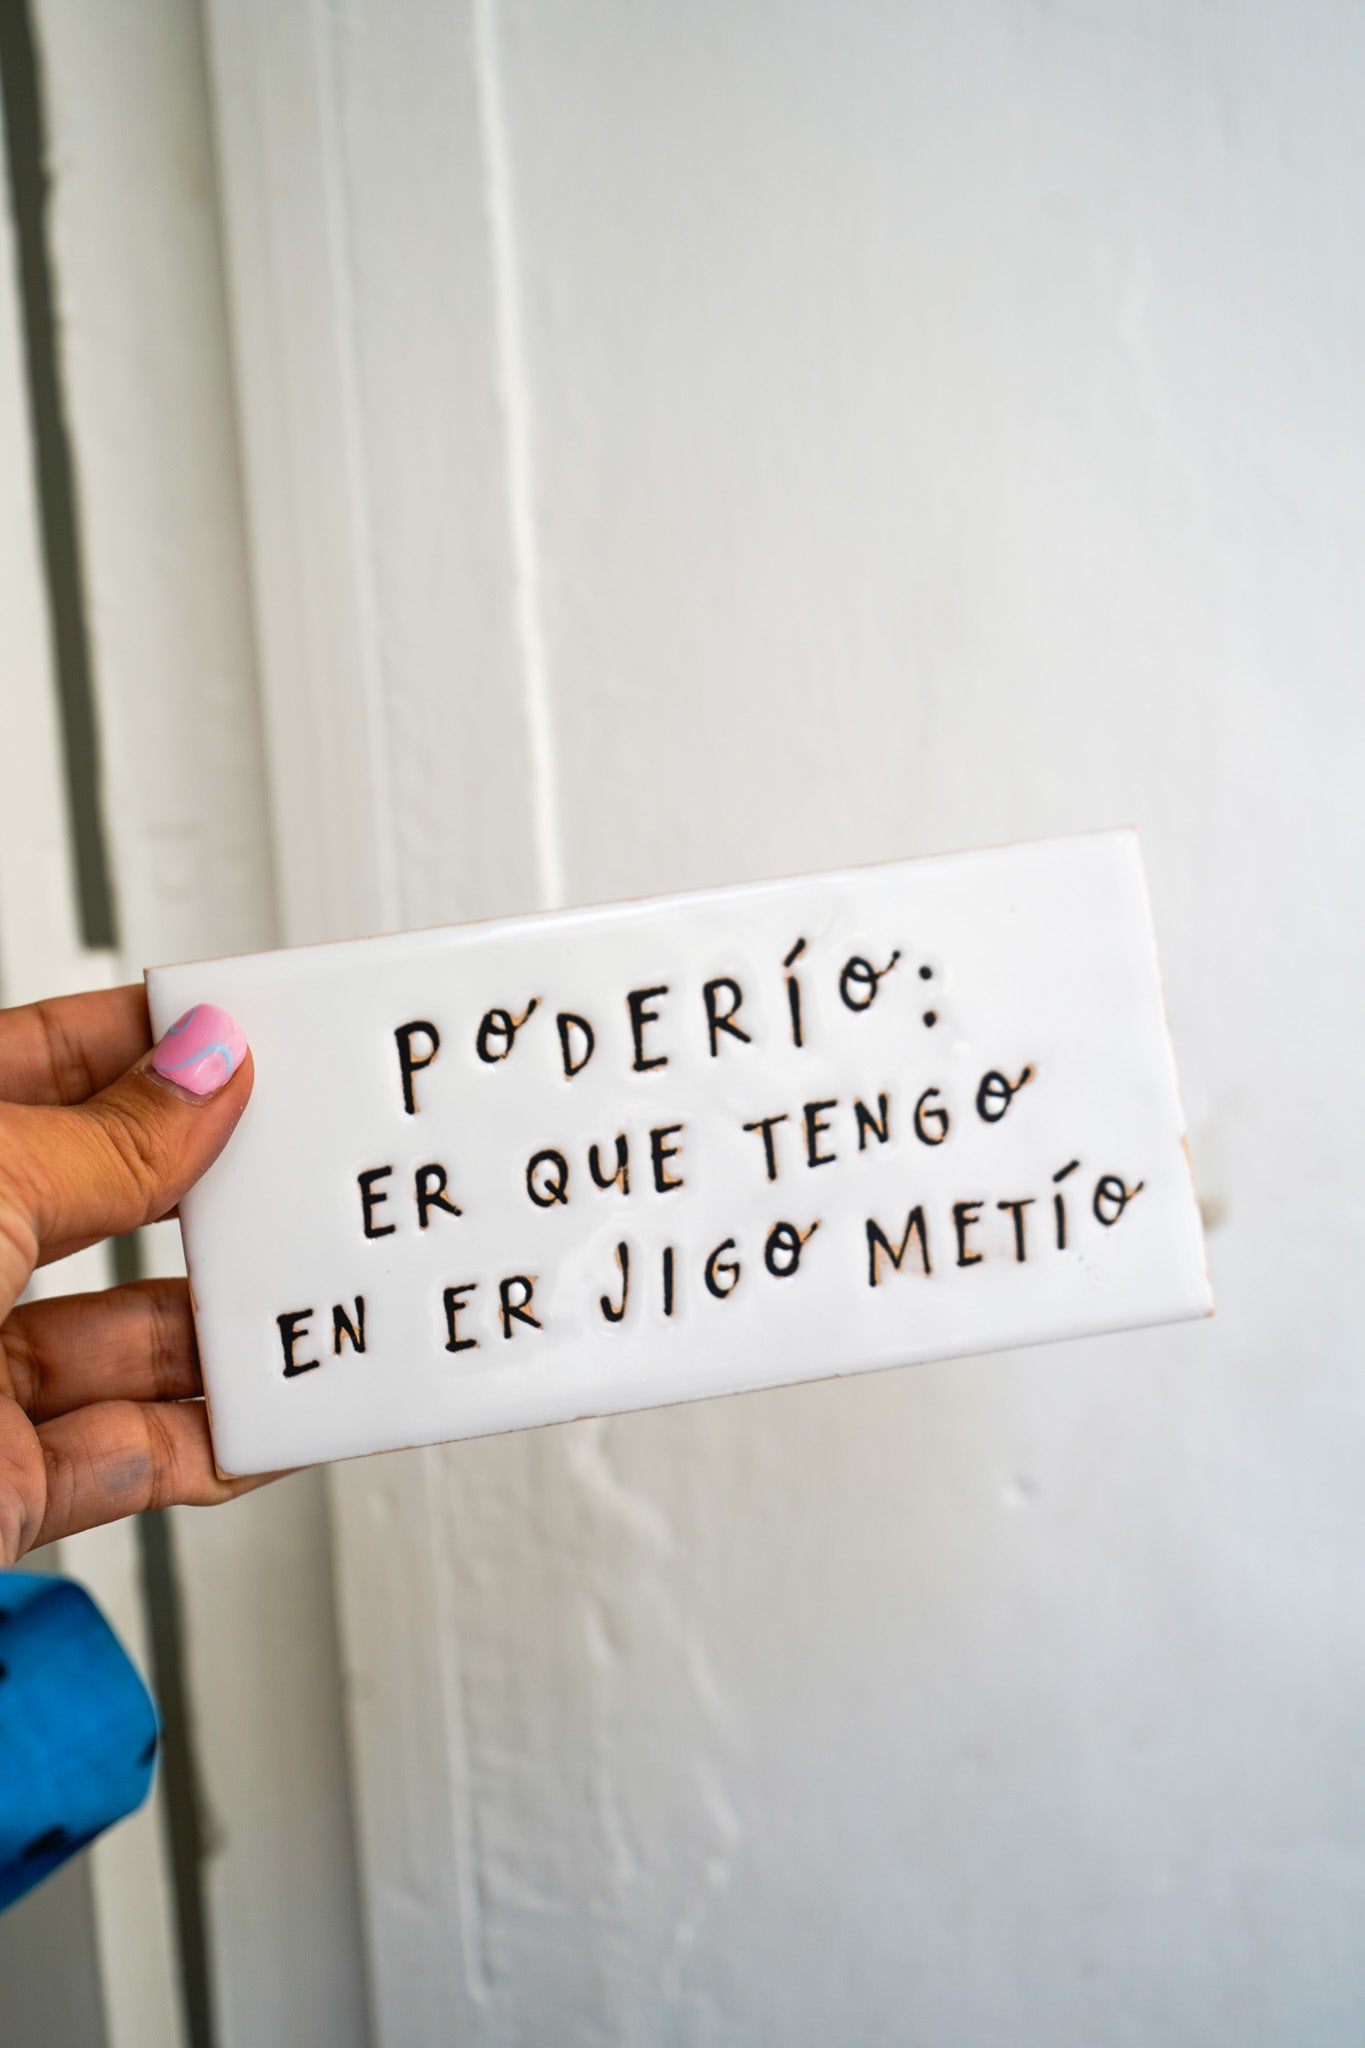 PODERÍO:
ER QUE TENGO
EN ER JIGO METÍO